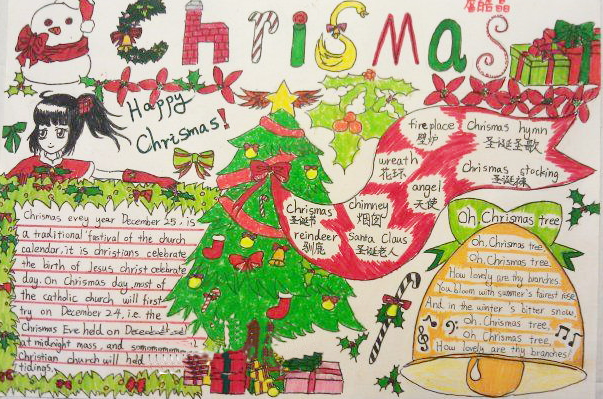 Chrismas
Happy
Chrismas!
fireplace
壁炉
Chrismas hymn
圣诞圣歌
wreath
花环
Chrismas stocking
圣诞袜
angel
天使
Chrismas
圣诞节
chimney
烟囱
reindeer
驯鹿
Santa Claus
圣诞老人
Chrismas evey year December 25, is
a traditional fastival of the church
calendar, it is christians celebrate
the birth of Jesus christ celebrate
day. On Chrismas day, most of
the catholic church will first
try on December 24, i.e. the
Chrismas Eve held on December
at midnight mass, and some
Christian church will hold
tidings.
Oh, Chrismas tree
Oh, Chrismas tree
Oh, Chrismas tree
How lovely are thy branches.
You bloom with summer's fairest rose
And in the winter's bitter snow,
Oh, Chrismas tree,
Oh, Chrismas tree,
How lovely are thy branches!